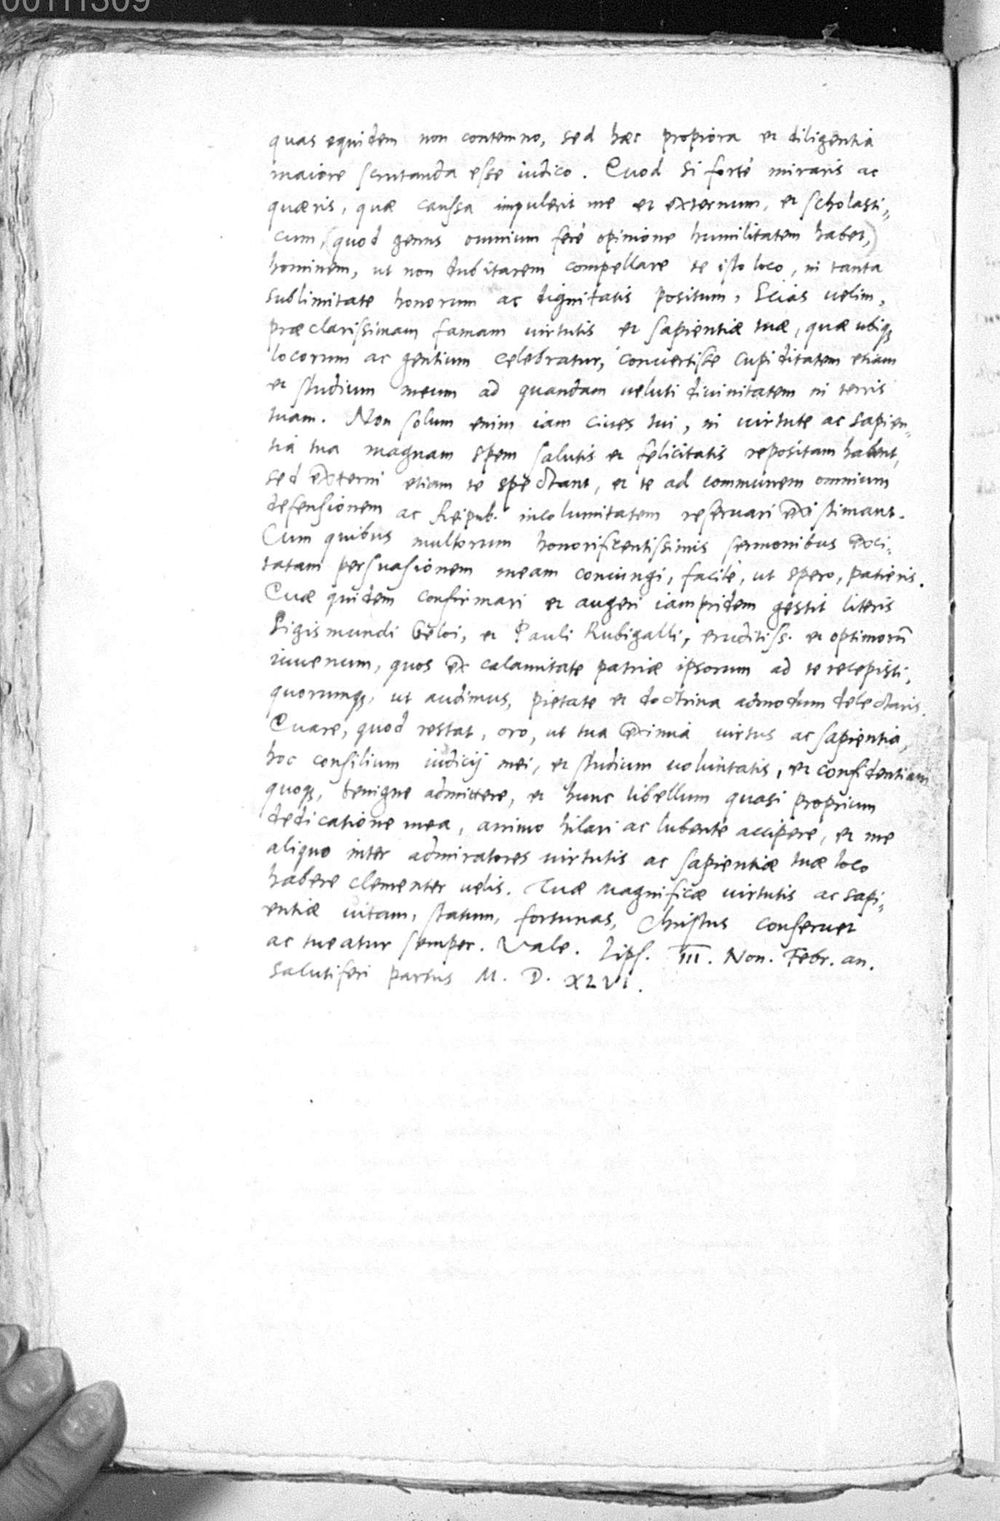 00111309
quas equidem non contemno, sed hæc propiora et diligentia
maiore scrutanda esse iudico. Quod si forte miraris ac
quæris, quæ caussa impulerit me et externum, et scholasti,
cum, (quod genus omnium ferè opinione humilitatem habet,)
hominem, ut non dubitarem compellare te isto loco, in tanta
sublimitate honorum ac dignitatis positum, Scias uelim,
præclarissimam famam uirtutis et sapientiæ tuæ, quæ ubiq;
locorum ac gentium celebratur, conuertisse cupiditatem etiam
et studium meum ad quandam ueluti diuinitatem in terris
tuam. Non solum enim iam ciues tui, in uirtute ac sapien,
tia tua magnam spem salutis et felicitatis repositam habent,
sed externi etiam te spectant, et te ad communem omnium
defensionem ac Reipub. incolumitatem reseruari existimant.
Cum quibus multorum honorificentissimis sermonibus exci,
tatam persuasionem meam coniungi, facilè, ut spero, patieris.
Quæ quidem confirmari et augeri iampridem gestit literis
Sigismundi Geloi, et Pauli Rubigalli, eruditiss. et optimorū
iuuenum, quos ex calamitate patriæ ipsorum ad te recepisti,
quorumq; ut audimus, pietate et doctrina admodum delectaris.
Quare, quod restat, oro, ut tua eximia uirtus ac sapientia,
hoc consilium iudicij mei, et studium uoluntatis, et confidentiam
quoq; benigne admittere, et hunc libellum quasi proprium
dedicatione mea, animo hilari ac lubente accipere, et me
aliquo inter admiratores uirtutis ac sapientiæ tuæ loco
habere clementer uelis. Tuæ magnificæ uirtutis ac sapi,
entiæ uitam, statum, fortunas, Christus conseruet
ac tueatur semper. Vale. Lips. III. Non. Febr. an.
salutiferi partus M. D. XLVI.